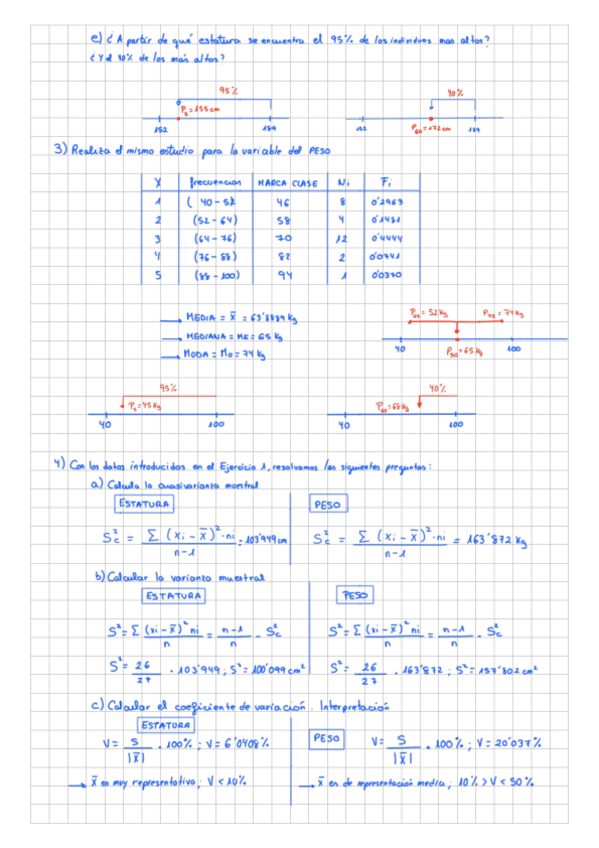 e) ¿A partir de qué estatura se encuentra el 95% de los individuos mas altos?
¿Y el 40% de los más altos?
95%
P5 = 155cm
152 189
40%
P60 = 172cm
152 189
3) Realiza el mismo estudio para la variable del PESO
X frecuencias MARCA CLASE Ni Fi
1 (40-52 46 8 0'2963
2 (52-64) 58 4 0'1481
3 (64-76) 70 12 0'4444
4 (76-88) 82 2 0'0741
5 (88-100) 94 1 0'0370
MEDIA = x̄ = 63'8889 Kg
MEDIANA = Me = 65 Kg
MODA = Mo = 74 Kg
P25 = 52Kg P75 = 74Kg
40 P50 = 65Kg 100
95%
P5 = 45Kg
40 100
40%
P60 = 68Kg
40 100
4) Con los datos introducidos en el Ejercicio 1, resolvamos las siguientes preguntas:
a) Calcula la cuasivarianza muestral
ESTATURA
Sc² = Σ (xi - x̄)²·ni / n-1 = 103'949 cm
PESO
Sc² = Σ (xi - x̄)²·ni / n-1 = 163'872 Kg
b) Calcular la varianza muestral
ESTATURA
S² = Σ (xi - x̄)² ni / n = n-1 / n · Sc²
S² = 26 / 27 · 103'949; S² = 100'099 cm²
PESO
S² = Σ (xi - x̄)² ni / n = n-1 / n · Sc²
S² = 26 / 27 · 163'872; S² = 157'802 cm²
c) Calcular el coeficiente de variación. Interpretación
ESTATURA
V = S / |x̄| · 100%; V = 6'0408%
x̄ es muy representativo; V < 10%
PESO
V = S / |x̄| · 100%; V = 20'037%
x̄ es de representación media; 10% > V < 50%